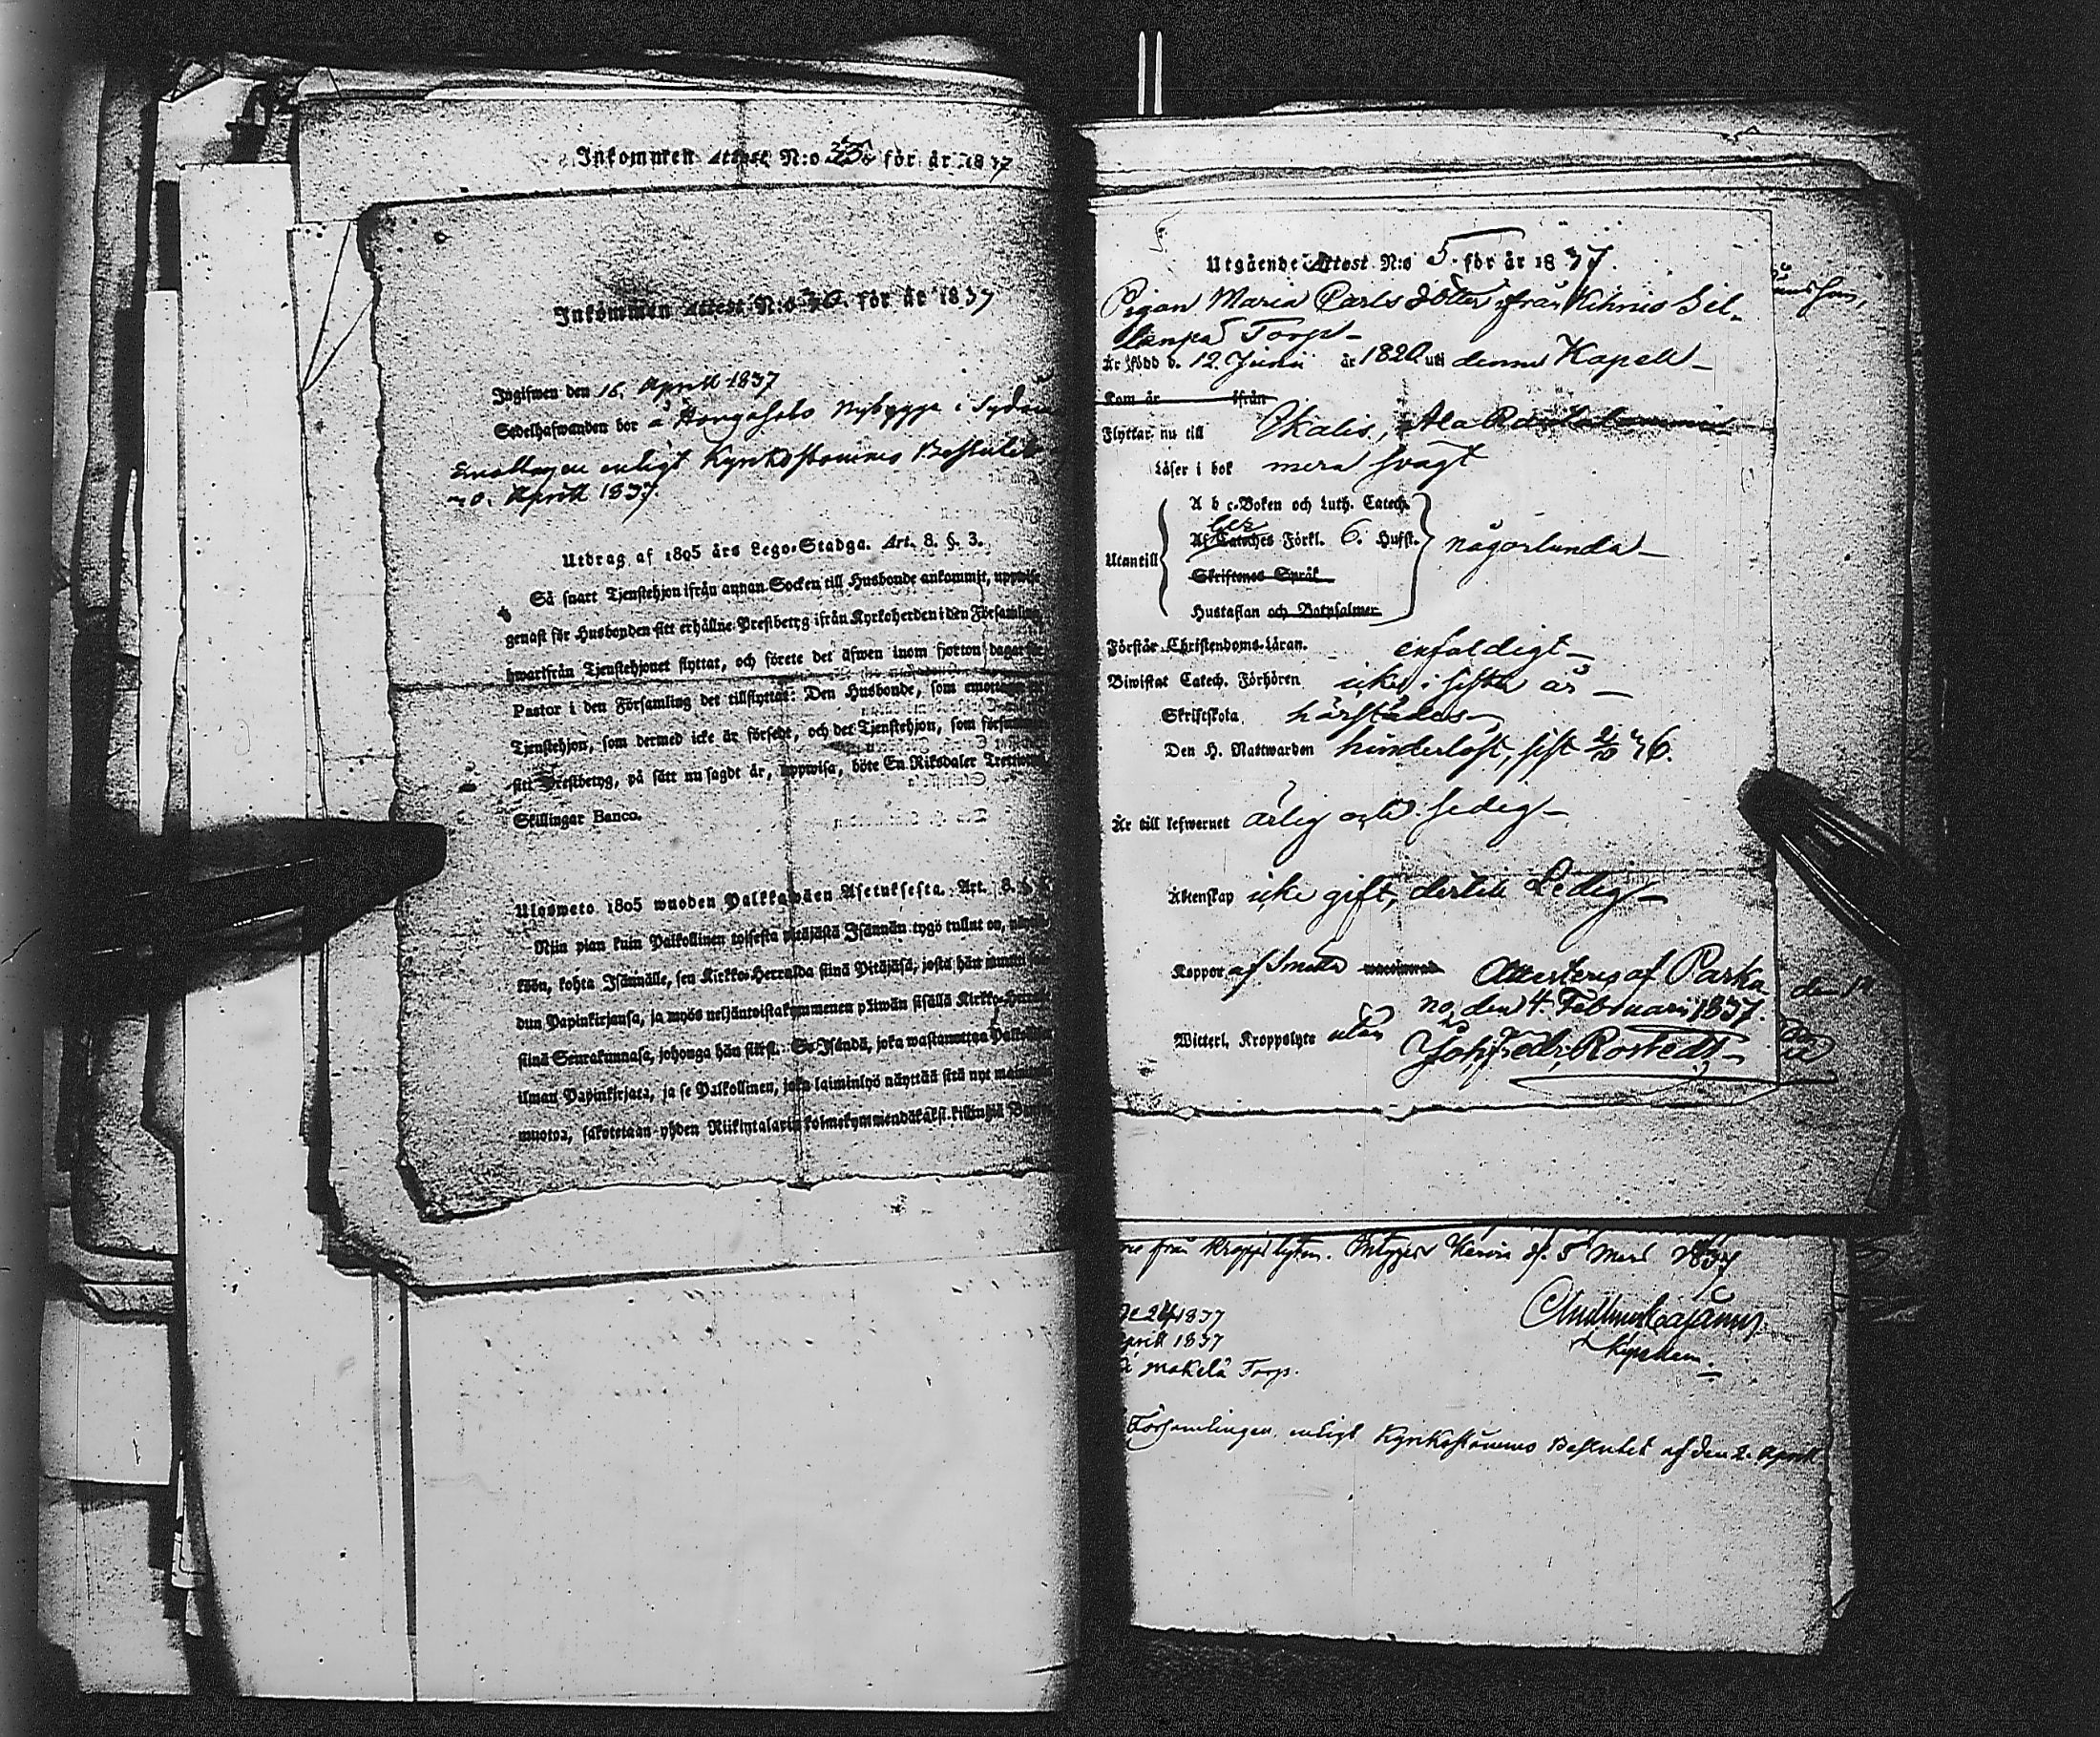 Inkommen Attest N:o 35. för år 1837
Inkommen Attest N:o 36. för år 1837
Ingifwen den 16. April 1837
Sedelhafwanden bor å Nybygge i
enligt Kyrkostämmo Beslutet
April 1837.
Utdrag af 1805 års Lego-Stadga. Art. 8. §. 3.
Så snart Tjenstehjon ifrån annan Socken till Husbonde ankommit, uppwise
genast för Husbonden sitt erhållne Prestbetyg ifrån Kyrkoherden i den Församling,
hwarifrån Tjenstehjonet flyttat, och förete det äfwen inom fjorton dagar för
Pastor i den Församling det tillflyttat: Den Husbonde, som emottager
Tjenstehjon, som dermed icke är försedt, och det Tjenstehjon, som försummar
sitt Prestbetyg, på sätt nu sagdt är, uppwisa, böte En Riksdaler Trettio
Skillingar Banco.
Ulosweto 1805 wuoden Palkkawäen Asetuksesta. Art. 8. §.
Niin pian kuin Palkollinen toisesta pitäjästä Isännän tygö tullut on,
köön, kohta Isännälle, sen Kirkko-Herralda siinä Pitäjäsä, josta hän muutti
dun Papinkirjansa, ja myös neljäntoistakymmenen päiwän sisällä Kirkko-Herralle
siinä Seurakunnasa, johonga hän siirsi. Se Isändä, joka wastanottaa Palkollisen
ilman Papinkirjata, ja se Palkollinen, joka laiminlyö näyttää sitä nyt
muotoa, sakotetaan yhden Riikintalarin kolmekymmendäkaksi killingiä
Utgående Attest N:o 5. för år 1837.
Pigan Maria Carls dotter ifrån Kihnio Sil-
lanpä Torp
Är född d. 12 Junii år 1820 uti denna Kapell
Kom år ifrån
Flyttar nu till Ikalis, Ala
Läser i bok mera svagt
A b c-Boken och Luth. Catech.
Utantill Förkl. 6. Hufst. någorlunda
Skriftenes Språk
Hustaflan och Botpsalmer
Förstår Christendoms-Läran. enfaldigt
Biwistat Catech. Förhören icke i sista år
Skriftskola härstädes
Den H. Nattwarden hinderlöst, sist 36.
Är till lefwernet ärlig och sedig
Äktenskap icke gift, dertill Ledig
Koppor af Smitta Attesteras af Parka
no, den 4. Februari 1837.
Witterl. Kroppslyte utan
Rostedt
från kroppslyten. Kuru d. 5 Mars 1837
1837
April 1837
Mäkelä Torp.
Församlingen enligt Kyrkostämmo Beslutet af den 2. April